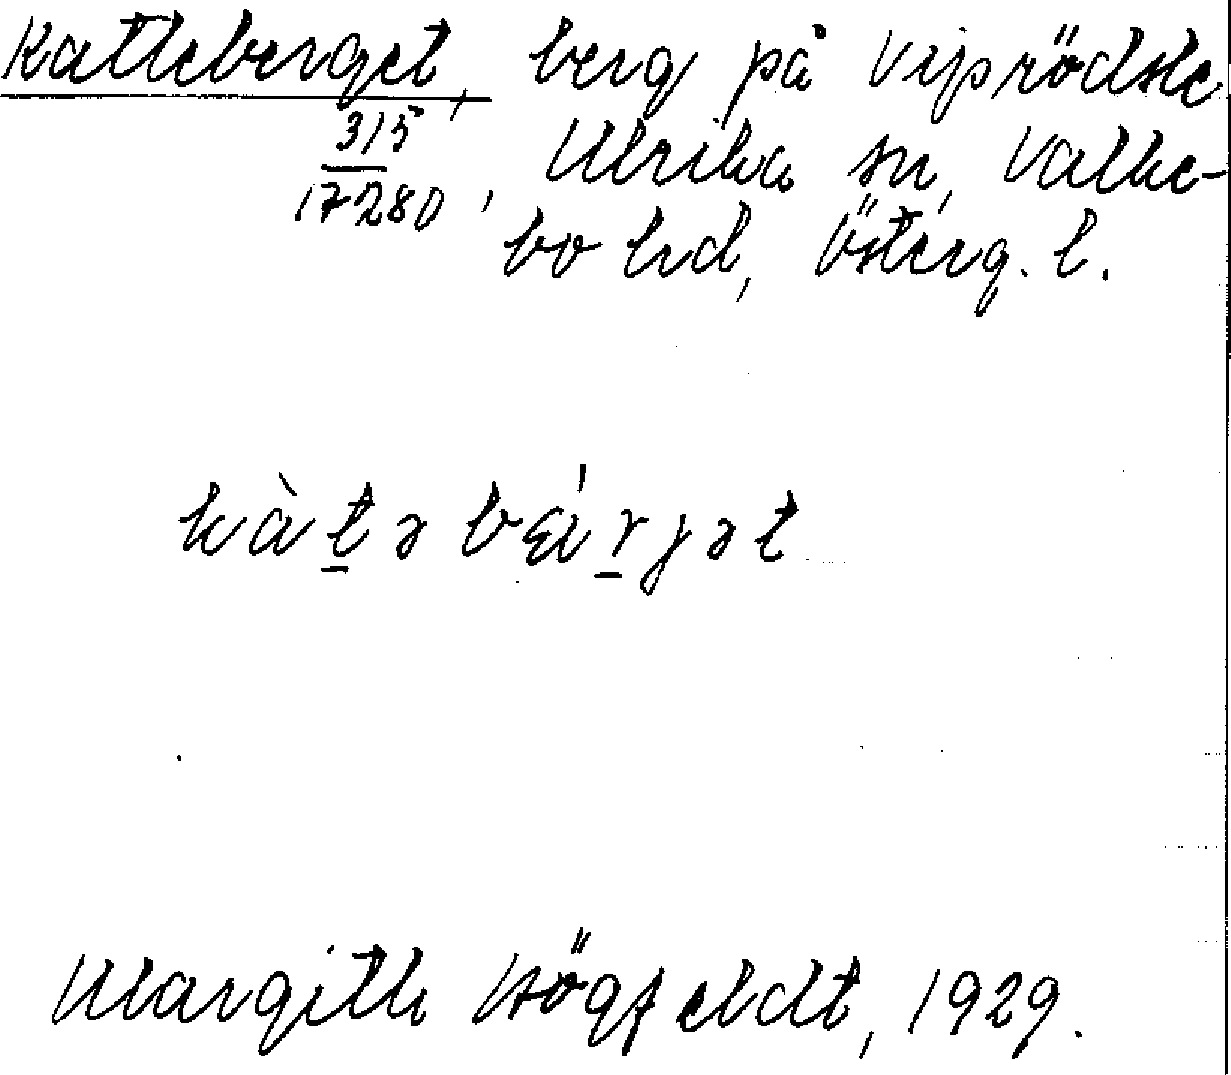 Katteberget, berg på Viprödsle
315
17280, Ulrika sn, Valke-
bo hd, Österg. l.
kàtəbæ̀rjət
Margith Högfeldt, 1929.